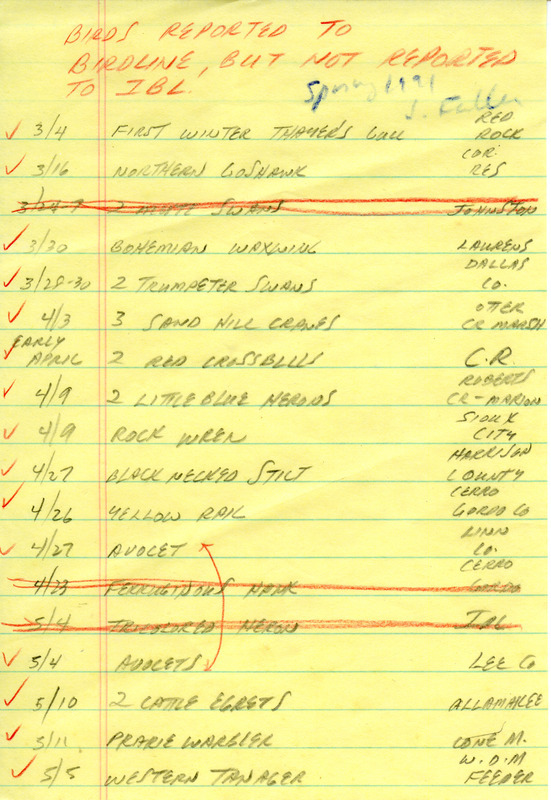 BIRDS REPORTED TO
BIRDLINE, BUT NOT REPORTED
TO IBL.
Spring 1991
J. Fuller
3/4 FIRST WINTER THAYER'S GULL RED ROCK
3/16 NORTHERN GOSHAWK COR. RES
2 MUTE SWANS JOHNSTON
3/30 BOHEMIAN WAXWING LAURENS
3/28-30 2 TRUMPETER SWANS DALLAS CO.
4/3 3 SAND HILL CRANES OTTER CR MARSH
EARLY APRIL 2 RED CROSSBILLS C.R.
4/9 2 LITTLE BLUE HERONS ROBERTS CR-MARION
4/9 ROCK WREN SIOUX CITY
4/27 BLACK NECKED STILT HARRISON COUNTY
4/26 YELLOW RAIL CERRO GORDO CO
4/27 AVOCET LINN CO.
4/23 FERRUGINOUS HAWK CERRO GORDO
5/4 TRICOLORED HERON IBL
5/4 AVOCETS LEE CO
5/10 2 CATTLE EGRETS ALLAMAKEE
5/11 PRARIE WARBLER LONE M.
5/5 WESTERN TANAGER W.D.M FEEDER